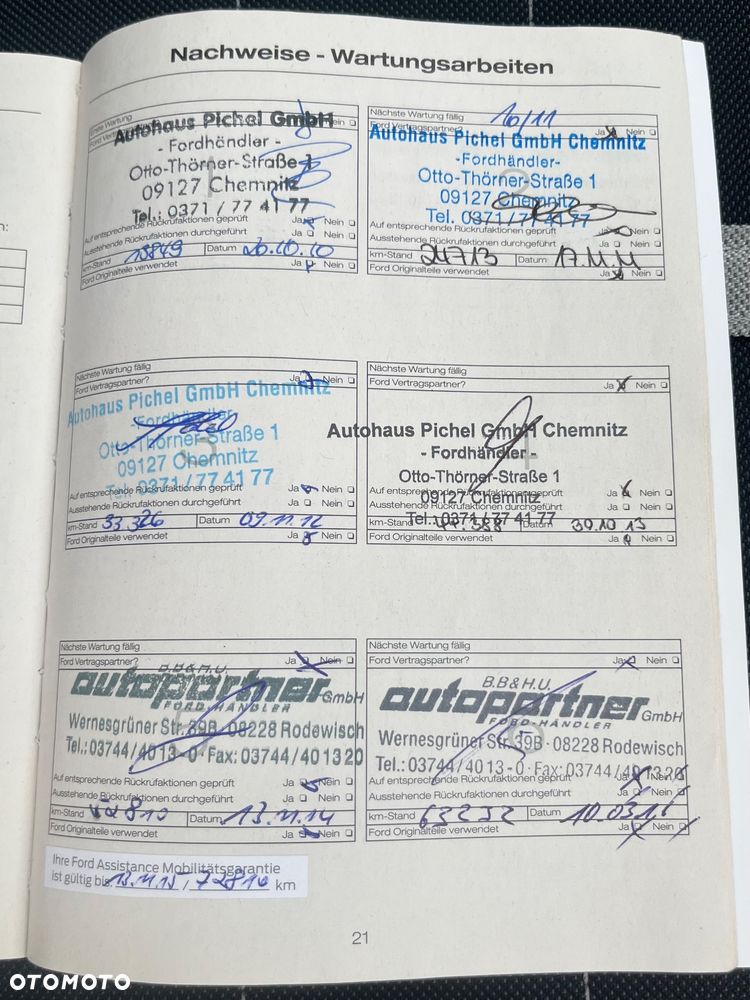 Nachweise - Wartungsarbeiten
Erste Wartung
Autohaus Pichel GmbH
- Fordhändler -
Otto-Thörner-Straße 1
09127 Chemnitz
Tel.: 0371 / 77 41 77
Auf entsprechende Rückrufaktionen geprüft Ja Nein
Ausstehende Rückrufaktionen durchgeführt Ja Nein
km-Stand 13849 Datum 20.10.10
Ford Originalteile verwendet Ja Nein
Nächste Wartung fällig 10/11
Ford Vertragspartner? Ja Nein
Autohaus Pichel GmbH Chemnitz
-Fordhändler-
Otto-Thörner-Straße 1
09127 Chemnitz
Tel. 0371/77 41 77
Auf entsprechende Rückrufaktionen geprüft Ja Nein
Ausstehende Rückrufaktionen durchgeführt Ja Nein
km-Stand 24713 Datum 17.11.11
Ford Originalteile verwendet Ja Nein
Nächste Wartung fällig
Ford Vertragspartner? Ja Nein
Autohaus Pichel GmbH Chemnitz
-Fordhändler-
Otto-Thörner-Straße 1
09127 Chemnitz
Tel. 0371/77 41 77
Auf entsprechende Rückrufaktionen geprüft Ja Nein
Ausstehende Rückrufaktionen durchgeführt Ja Nein
km-Stand 33326 Datum 09.11.12
Ford Originalteile verwendet Ja Nein
Nächste Wartung fällig
Ford Vertragspartner? Ja Nein
Autohaus Pichel GmbH Chemnitz
- Fordhändler -
Otto-Thörner-Straße 1
09127 Chemnitz
Auf entsprechende Rückrufaktionen geprüft Ja Nein
Ausstehende Rückrufaktionen durchgeführt Ja Nein
Tel.: 0371 / 77 41 77
km-Stand Datum 30.10.13
Ford Originalteile verwendet Ja Nein
Nächste Wartung fällig
Ford Vertragspartner? Ja Nein
B.B.& H.U.
autopartner GmbH
FORD-HÄNDLER
Wernesgrüner Str. 39B · 08228 Rodewisch
Tel.: 03744/40 13-0 · Fax: 03744/40 13 20
Auf entsprechende Rückrufaktionen geprüft Ja Nein
Ausstehende Rückrufaktionen durchgeführt Ja Nein
km-Stand 52810 Datum 13.11.14
Ford Originalteile verwendet Ja Nein
Nächste Wartung fällig
Ford Vertragspartner? Ja Nein
B.B.& H.U.
autopartner GmbH
FORD-HÄNDLER
Wernesgrüner Str. 39B · 08228 Rodewisch
Tel.: 03744/40 13-0 · Fax: 03744/40 13 20
Auf entsprechende Rückrufaktionen geprüft Ja Nein
Ausstehende Rückrufaktionen durchgeführt Ja Nein
km-Stand 63232 Datum 10.03.16
Ford Originalteile verwendet Ja Nein
Ihre Ford Assistance Mobilitätsgarantie
ist gültig bis 13.11.15 / 72810 km
21
OTOMOTO